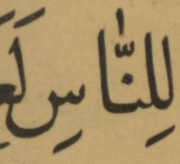 لِلنَّاسِ لَعَ